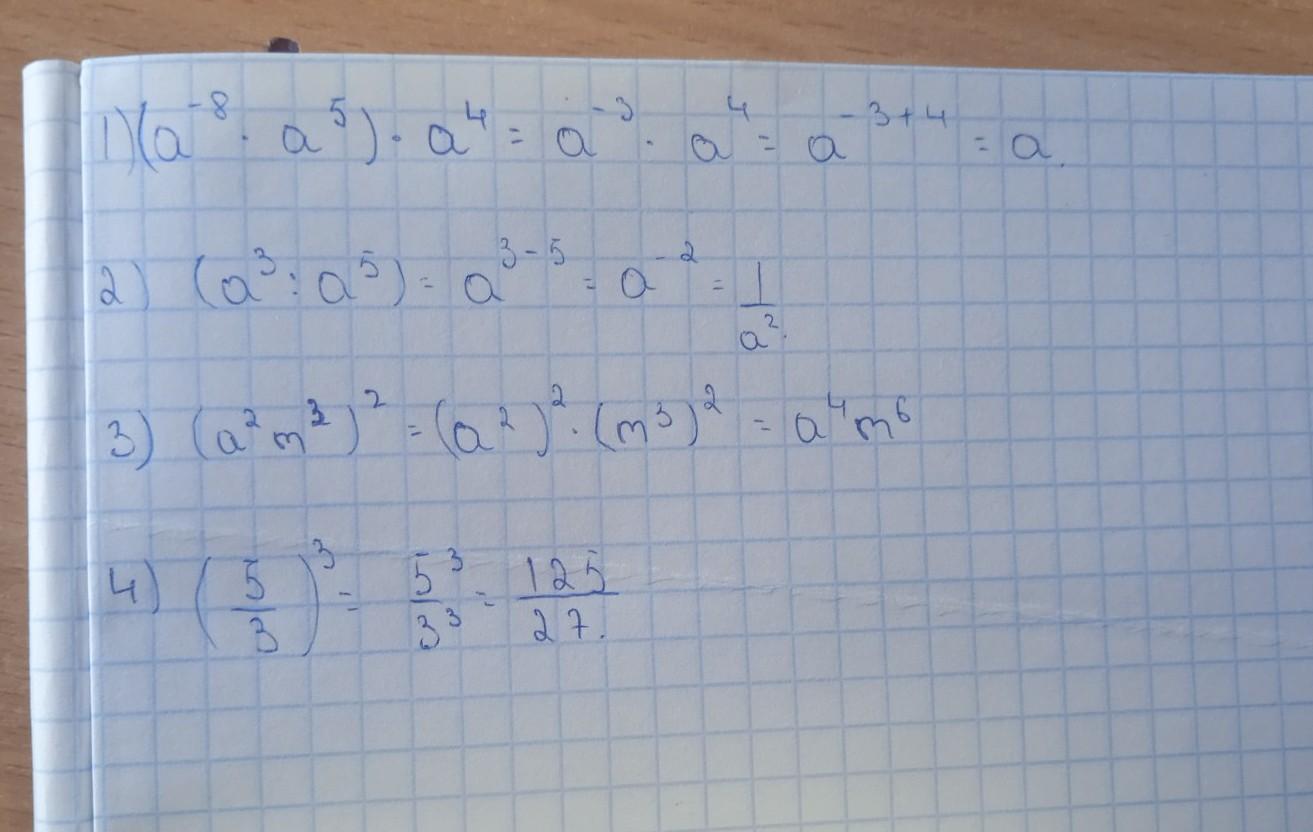 1) (a⁻⁸ · a⁵) · a⁴ = a⁻³ · a⁴ = a⁻³⁺⁴ = a.
2) (a³ : a⁵) = a³⁻⁵ = a⁻² = 1/a².
3) (a²m³)² = (a²)² · (m³)² = a⁴m⁶
4) (5/3)³ = 5³/3³ = 125/27.